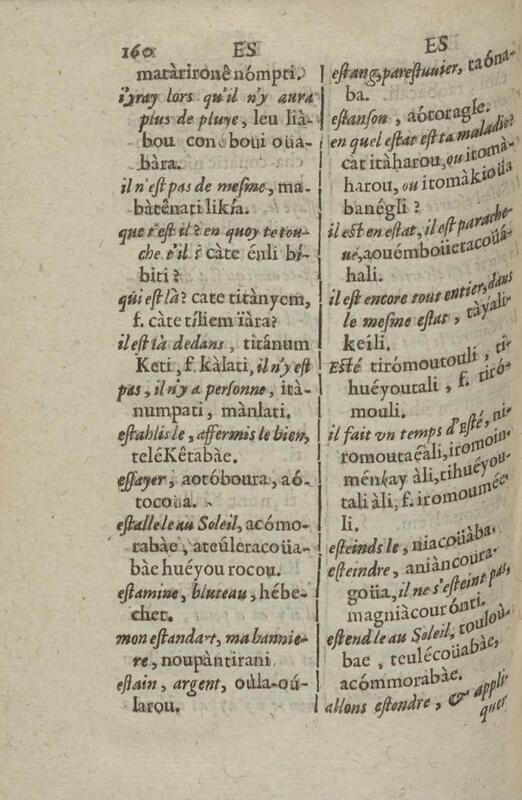 160 ES
matàrironê nómpti.
i'yray lors qu'il n'y aura
plus de pluye, leu lià-
bou conéboüi oüa-
bàra.
il n'est pas de mesme, ma-
bàtênati likía.
que t'est il? en quoy te tou-
che t'il? càte énli bí-
biti?
qui est là? cate titànyem,
f. càte tíliem ïàra?
il est là dedans, titánum
Keti, f. kàlati, il n'y est
pas, il n'y a personne, ità-
numpati, mànlati.
establis le, affermis le bien,
teléKêtabàe.
essayer, aotóboura, aó-
tocoüa.
estalle le au Soleil, acómo-
rabàe, ateûleracoüa-
bàe huéyou rocou.
estamine, bluteau, hébe-
chet.
mon estandart, ma bannie-
re, noupàntirani
estain, argent, oúla-oú-
larou.
ES
estang, par estuuier, taóna-
ba.
estanson, aótoragle.
en quel estat est ta maladie?
cat itàharou, ou itomà-
harou, ou itomàkioüa
banégli?
il est en estat, il est parache-
ué, aouémboüetacoüá-
hali.
il est encore tout entier, dans
le mesme estat, tàyali-
keili.
Esté tirómoutouli, tí-
huéyoutali, f. tiró-
mouli.
il fait vn temps d'Esté, ni-
romoutaéàli, iromoin-
ménkay àli, tihuéyou-
tali àli, f. iromoumée-
li.
esteinds le, niacoüàba.
esteindre, aniàncoura-
goüa, il ne s'esteint pas,
magniàcourónti.
estend le au Soleil, touloù-
bae, teulécoüabàe,
acómmorabàe.
allons estendre, & appli-
quer